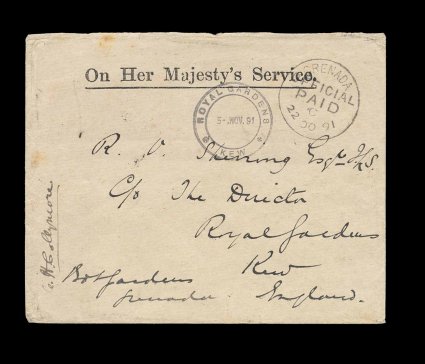 On Her Majesty's Service.
ROYAL GARDENS
5-NOV.91
KEW
GRENADA
OFFICIAL
PAID
C
22 OC 91
R. V. Sherring Esqre
C/o The Director
Royal Gardens
Kew
England.
Bot Gardens
Grenada